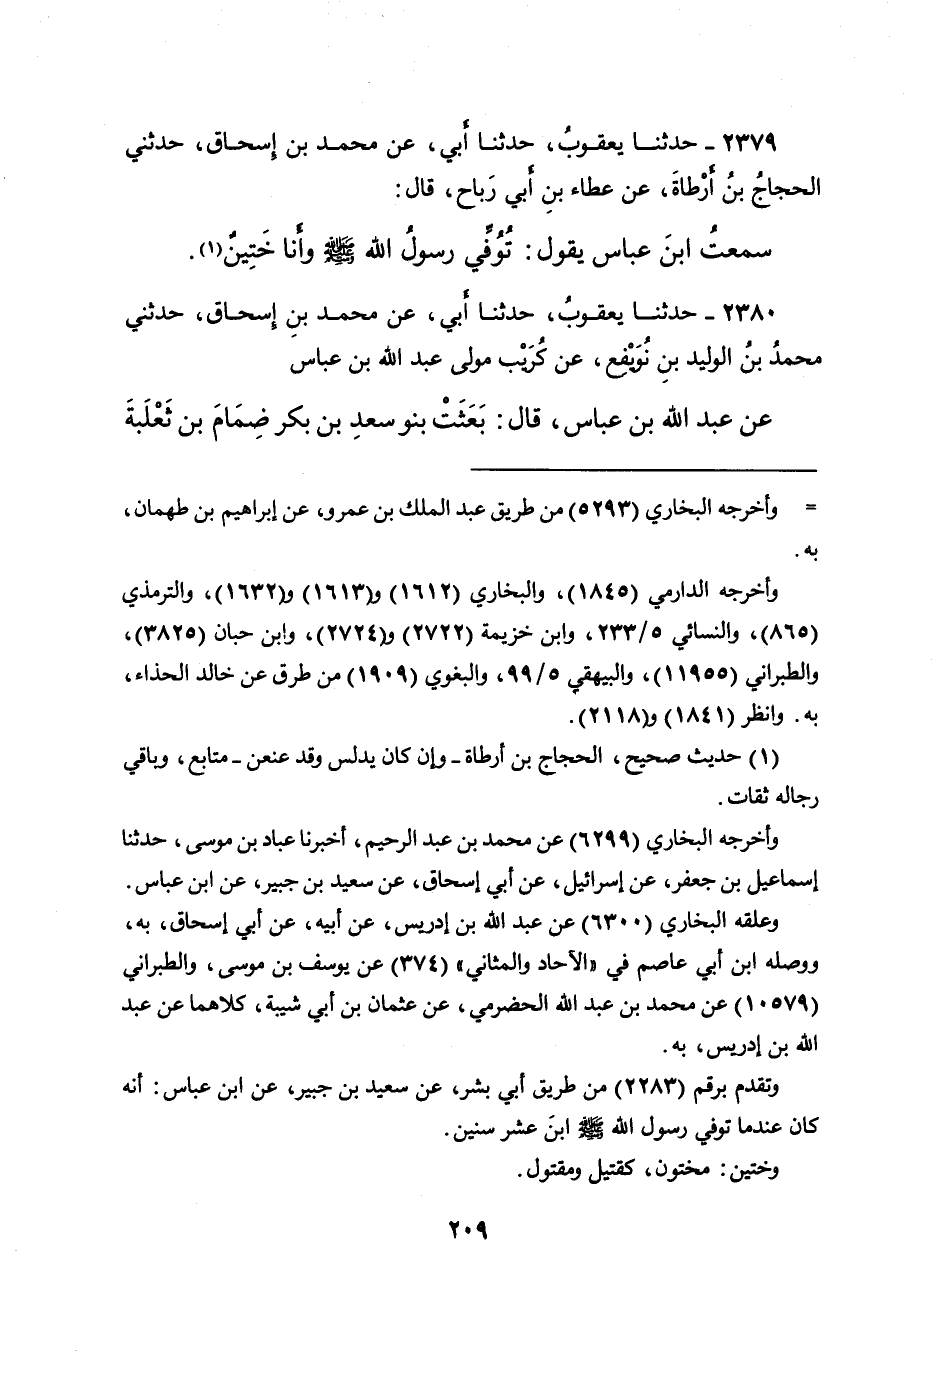 ٢٣٧٩ ـ حدثنا يعقوبُ، حدثنا أَبي، عن محمد بن إسحاق، حدثني
الحجاجُ بنُ أَرْطاةَ، عن عطاء بنِ أَبي رَباح، قال:
سمعتُ ابنَ عباس يقول: تُوُفِّي رسولُ الله ﷺ وأَنا خَتِينٌ(١).
٢٣٨٠ ـ حدثنا يعقوبُ، حدثنا أَبي، عن محمد بنِ إسحاق، حدثني
محمدُ بنُ الوليد بنِ نُوَيْفِع، عن كُرَيْب مولى عبد الله بن عباس
عن عبد الله بن عباس، قال: بَعَثَتْ بنو سعدِ بن بكر ضِمَامَ بن ثَعْلَبةَ
= وأخرجه البخاري (٥٢٩٣) من طريق عبد الملك بن عمرو، عن إبراهيم بن طهمان،
به.
وأخرجه الدارمي (١٨٤٥)، والبخاري (١٦١٢) و(١٦١٣) و(١٦٣٢)، والترمذي
(٨٦٥)، والنسائي ٢٣٣/٥، وابن خزيمة (٢٧٢٢) و(٢٧٢٤)، وابن حبان (٣٨٢٥)،
والطبراني (١١٩٥٥)، والبيهقي ٩٩/٥، والبغوي (١٩٠٩) من طرق عن خالد الحذاء،
به. وانظر (١٨٤١) و(٢١١٨).
(١) حديث صحيح، الحجاج بن أرطاة ـ وإن كان يدلس وقد عنعن ـ متابع، وباقي
رجاله ثقات.
وأخرجه البخاري (٦٢٩٩) عن محمد بن عبد الرحيم، أخبرنا عباد بن موسى، حدثنا
إسماعيل بن جعفر، عن إسرائيل، عن أبي إسحاق، عن سعيد بن جبير، عن ابن عباس.
وعلقه البخاري (٦٣٠٠) عن عبد الله بن إدريس، عن أبيه، عن أبي إسحاق، به،
ووصله ابن أبي عاصم في «الآحاد والمثاني» (٣٧٤) عن يوسف بن موسى، والطبراني
(١٠٥٧٩) عن محمد بن عبد الله الحضرمي، عن عثمان بن أبي شيبة، كلاهما عن عبد
الله بن إدريس، به.
وتقدم برقم (٢٢٨٣) من طريق أبي بشر، عن سعيد بن جبير، عن ابن عباس: أنه
كان عندما توفي رسول الله ﷺ ابنَ عشر سنين.
وختين: مختون، كقتيل ومقتول.
٢٠٩